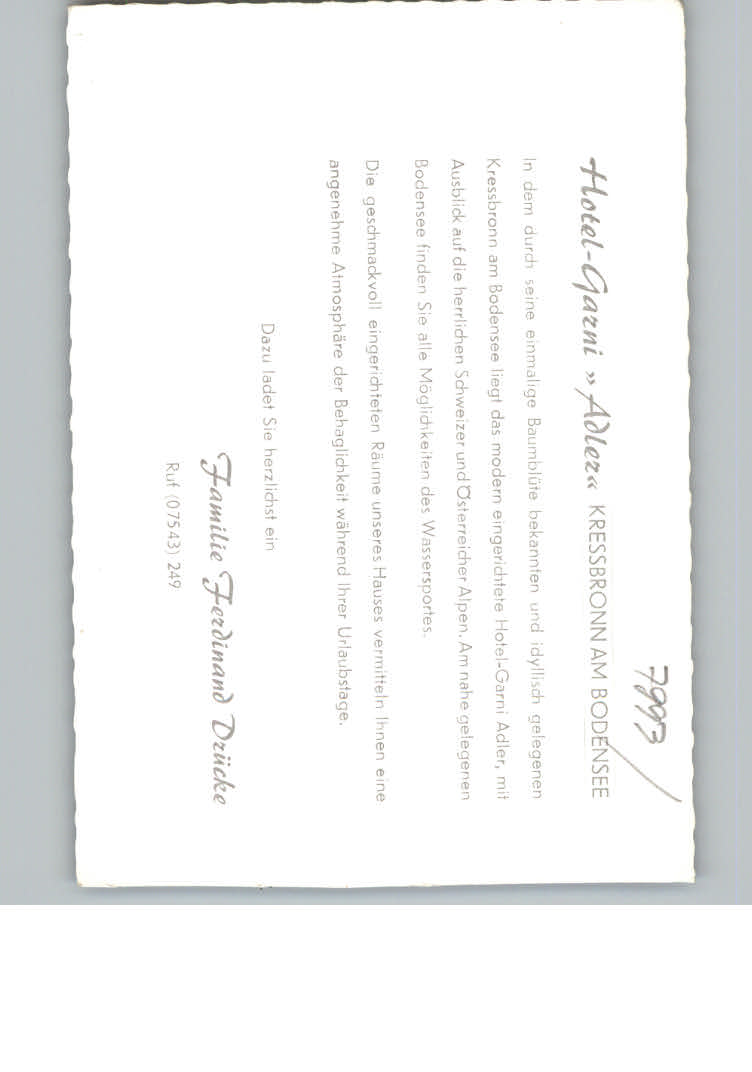 7993
Hotel-Garni »Adler« KRESSBRONN AM BODENSEE
In dem durch seine einmalige Baumblüte bekannten und idyllisch gelegenen
Kressbronn am Bodensee liegt das modern eingerichtete Hotel-Garni Adler, mit
Ausblick auf die herrlichen Schweizer und Österreicher Alpen. Am nahe gelegenen
Bodensee finden Sie alle Möglichkeiten des Wassersportes.
Die geschmackvoll eingerichteten Räume unseres Hauses vermitteln Ihnen eine
angenehme Atmosphäre der Behaglichkeit während Ihrer Urlaubstage.
Dazu ladet Sie herzlichst ein
Familie Ferdinand Drücke
Ruf (07543) 249